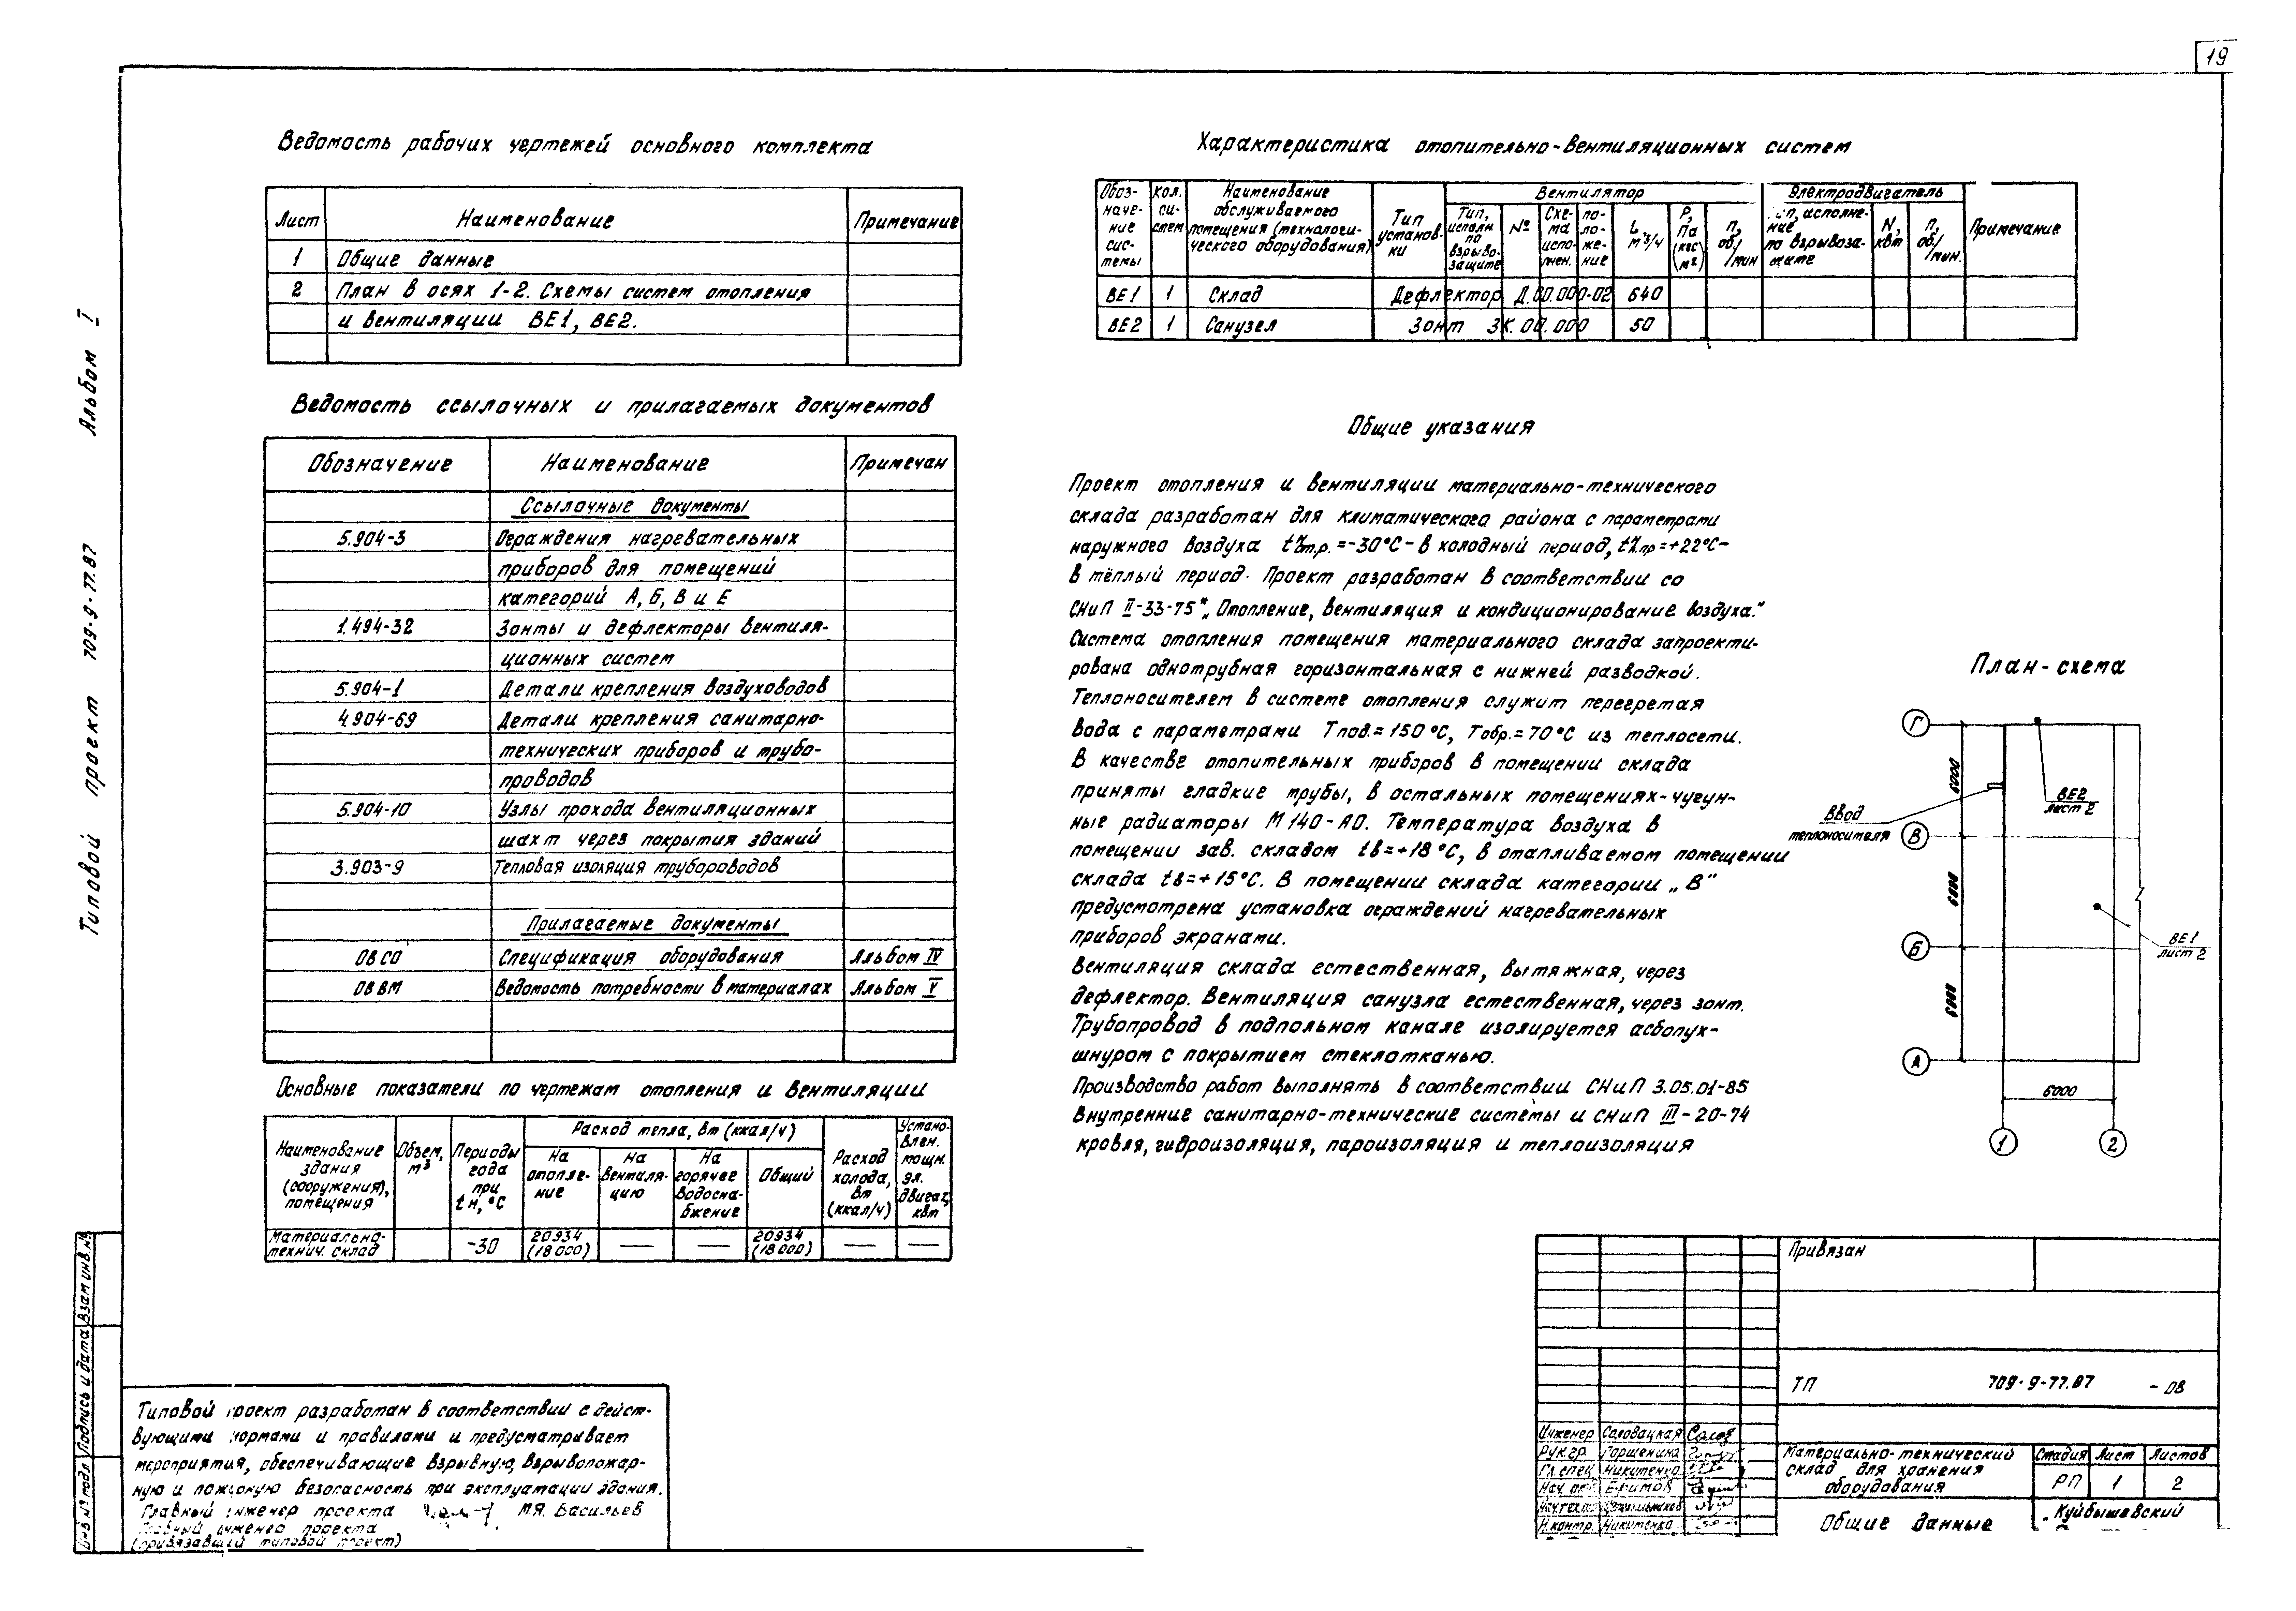 19
Альбом I
Типовой проект 709-9-77.87
Ведомость рабочих чертежей основного комплекта
Лист Наименование Примечание
1 Общие данные
2 План в осях 1-2. Схемы систем отопления
и вентиляции ВЕ1, ВЕ2.
Ведомость ссылочных и прилагаемых документов
Обозначение Наименование Примечан
Ссылочные документы
5.904-3 Ограждения нагревательных
приборов для помещений
категорий А, Б, В и Е
1.494-32 Зонты и дефлекторы вентиля-
ционных систем
5.904-1 Детали крепления воздуховодов
4.904-69 Детали крепления санитарно-
технических приборов и трубо-
проводов
5.904-10 Узлы прохода вентиляционных
шахт через покрытия зданий
3.903-9 Тепловая изоляция трубороводов
Прилагаемые документы
ОВ СО Спецификация оборудования Альбом IV
ОВ ВМ Ведомость потребности в материалах Альбом V
Основные показатели по чертежам отопления и вентиляции
Наименование
здания
(сооружения),
помещения
Объем,
м³
Периоды
года
при
tн, °С
Расход тепла, вт (ккал/ч)
На
отопле-
ние
На
вентиля-
цию
На
горячее
водосна-
бжение
Общий
Расход
холода,
вт
(ккал/ч)
Устано-
влен.
мощн.
эл.
двигат,
квт
Материально-
технич. склад
-30
20934
(18000)
—
—
20934
(18000)
—
—
Характеристика отопительно-вентиляционных систем
Обоз-
наче-
ние
сис-
темы
кол.
си-
стем
Наименование
обслуживаемого
помещения (технологи-
ческого оборудования)
Тип
установ-
ки
Вентилятор
Тип,
исполн.
по
взрыво-
защите
№
Схе-
ма
испо-
лнен.
по-
ло-
же-
ние
L,
м³/ч
Р,
Па
(кгс
м²)
п,
об./
мин
Электродвигатель
исполне-
ние
по взрывоза-
щите
N,
квт
п,
об/
мин.
Примечание
ВЕ1 1 Склад Дефлектор Д.00.000-02 640
ВЕ2 1 Санузел Зонт ЗК.00.000 50
Общие указания
Проект отопления и вентиляции материально-технического
склада разработан для климатического района с параметрами
наружного воздуха tот.р.=-30°С- в холодный период, tпр=+22°С-
в тёплый период. Проект разработан в соответствии со
СНиП II-33-75* „Отопление, вентиляция и кондиционирование воздуха."
Система отопления помещения материального склада запроекти-
рована однотрубная горизонтальная с нижней разводкой.
Теплоносителем в системе отопления служит перегретая
вода с параметрами Тпод.=150°С, Тобр.=70°С из теплосети.
В качестве отопительных приборов в помещении склада
приняты гладкие трубы, в остальных помещениях-чугун-
ные радиаторы М140-АО. Температура воздуха в
помещении зав. складом tв=+18°С, в отапливаемом помещении
склада tв=+15°С. В помещении склада категории „В"
предусмотрена установка ограждений нагревательных
приборов экранами.
Вентиляция склада естественная, вытяжная, через
дефлектор. Вентиляция санузла естественная, через зонт.
Трубопровод в подпольном канале изолируется асбопух-
шнуром с покрытием стеклотканью.
Производство работ выполнять в соответствии СНиП 3.05.01-85
Внутренние санитарно-технические системы и СНиП III-20-74
кровля, гидроизоляция, пароизоляция и теплоизоляция
План-схема
Г
6000
ВЕ2
лист 2
Ввод
теплоносителя
В
6000
Б
ВЕ1
лист 2
6000
А
6000
1 2
Типовой проект разработан в соответствии с дейст-
вующими нормами и правилами и предусматривает
мероприятия, обеспечивающие взрывную, взрывопожар-
ную и пожарную безопасность при эксплуатации здания.
Главный инженер проекта М.Я. Васильев
Главный инженер проекта
(привязавший типовой проект)
Инв № подл Подпись и дата Взам инв. №
Привязан
ТП 709-9-77.87 - ОВ
Инженер Соловацкая
Рук.гр. Горшенина
Гл.спец Никитенко
Нач. от
Нач.тех.от
Н.контр. Никитенко
Материально-технический
склад для хранения
оборудования
Стадия Лист Листов
РП 1 2
Общие данные
Куйбышевский